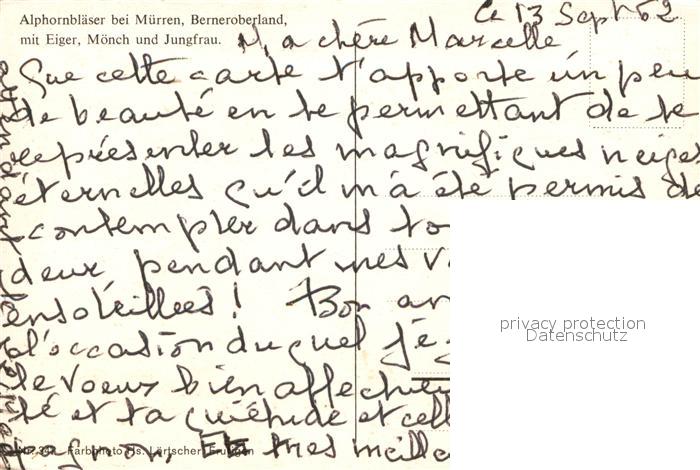 Alphornbläser bei Mürren, Berneroberland,
mit Eiger, Mönch und Jungfrau.
Le 13 Sept 62
Ma chère Marcelle
Que cette carte t'apporte un peu
de beauté en te permettant de te
représenter les magnifiques neiges
éternelles qu'il m'a été permis de
contempler dans to
deur pendant mes v
ensoleillées ! Bon an
d'occasion duquel je
de voeux bien affectueu
té et ta quiétude et cell
pagnon, tres meille
privacy protection
Datenschutz
Farbphoto Hs. Lörtscher, Frutigen